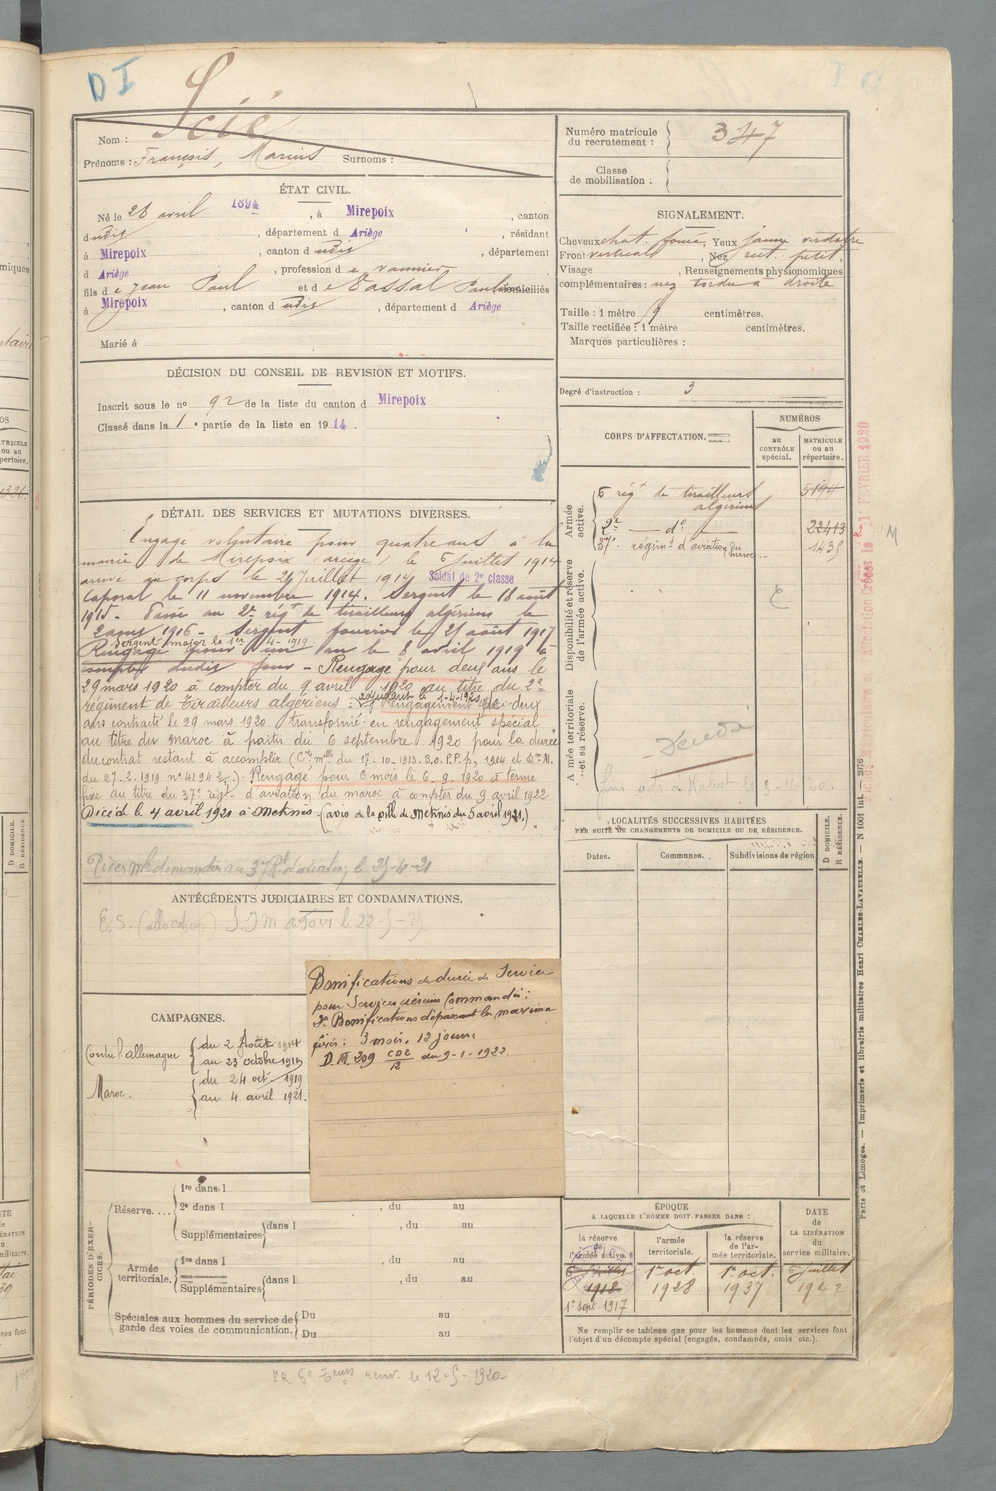 D I
Scié
Nom :
Prénoms : François, Marius Surnoms :
Numéro matricule
du recrutement : 347
Classe
de mobilisation :
ÉTAT CIVIL.
Né le 28 avril 1894, à Mirepoix, canton
dudit, département d Ariège, résidant
à Mirepoix, canton d udit, département
d Ariège, profession d e vannier
fils d e Jean Paul et d e Tassal Paule domiciliés
à Mirepoix, canton d udit, département d Ariège
Marié à
SIGNALEMENT.
Cheveux chat. foncé, Yeux jaune verdatre
Front vertical, Nez rect. petit.
Visage , Renseignements physionomiques
complémentaires : nez tordu à droite
Taille : 1 mètre 9 centimètres.
Taille rectifiée : 1 mètre centimètres.
Marques particulières :
Degré d'instruction : 3
DÉCISION DU CONSEIL DE REVISION ET MOTIFS.
Inscrit sous le no 92 de la liste du canton d Mirepoix
Classé dans la 1e partie de la liste en 1914.
DÉTAIL DES SERVICES ET MUTATIONS DIVERSES.
Engagé volontaire pour quatre ans à la
mairie de Mirepoix ariège, le 6 Juillet 1914
arrivé au corps le 24 Juillet 1914 Soldat de 2e classe
Caporal le 11 novembre 1914. Sergent le 18 août
1915. Passé au 2e régt de tirailleurs algériens le
1916 - Sergent fourrier le 21 août 1917
Sergent major le 1er 4-1919.
Rengagé pour un an le 8 avril 1919 à
compter dudit jour - Rengagé pour deux ans le
29 mars 1920 à compter du 9 avril 1920 au titre du 2e
adjudant le 1-4-1920
régiment de Tirailleurs algériens : rengagement de deux
ans contracté le 29 mars 1920 transformé en rengagement spécial
au titre du maroc à partir du 6 septembre 1920 pour la durée
du contrat restant à accomplir (Cre mlle du 17-10-1913. B.O.P.P. p, 1914 et Don M.
du 27-2-1919 n° 4194 2/5). Rengagé pour 6 mois le 6-9-1920 à terme
fixe au titre du 37e régt d'aviation du maroc à compter du 9 avril 1922
Décédé le 4 avril 1921 à Meknès. (avis de la pl. de Meknès du 5 avril 1921.)
Pièces mles demandées au 37e Rt d'aviation le 25-4-21
CORPS D'AFFECTATION.
NUMÉROS
au
CONTRÔLE
spécial.
MATRICULE
ou au
répertoire.
Armée
active.
6 régt de tirailleurs
algériens 5194
2e — do — 22413
37e régimt d'aviation du maroc 1435
Disponibilité et réserve
de l'armée active.
Armée territoriale
et sa réserve.
Décédé
LOCALITÉS SUCCESSIVES HABITÉES
PAR SUITE DE CHANGEMENTS DE DOMICILE OU DE RÉSIDENCE.
Dates. Communes. Subdivisions de région.
D DOMICILE.
R RÉSIDENCE.
ANTÉCÉDENTS JUDICIAIRES ET CONDAMNATIONS.
E.S. (allocation)
CAMPAGNES.
Contre l'allemagne du 2 Août 1914
au 23 Octobre 1919
Maroc. du 24 oct 1919
au 4 avril 1921.
Bonifications de durée de Service
pour Services aériens Commandés :
2e Bonifications dépassant le maxima
fixé : 3 mois, 12 jours
D.M. 209 COE/12 du 9-1-1922
PÉRIODES D'EXERCICES.
Réserve....
1re dans l
2e dans l , du au
Supplémentaires dans l , du au
Armée
territoriale.
1re dans l , du au
Supplémentaires dans l , du au
Spéciales aux hommes du service de
garde des voies de communication.
Du au
Du au
ÉPOQUE
A LAQUELLE L'HOMME DOIT PASSER DANS :
la réserve
de
l'armée active.
l'armée
territoriale.
la réserve
de l'armée territoriale.
DATE
de
LA LIBÉRATION
du
service militaire.
6 juillet
1918
1er sept 1917
1er oct
1928
1er oct.
1937
6 juillet
1942
Ne remplir ce tableau que pour les hommes dont les services font
l'objet d'un décompte spécial (engagés, condamnés, omis etc.).
Paris et Limoges. — Imprimerie et librairie militaires Henri CHARLES-LAVAUZELLE. — N 1001 int. — 2076